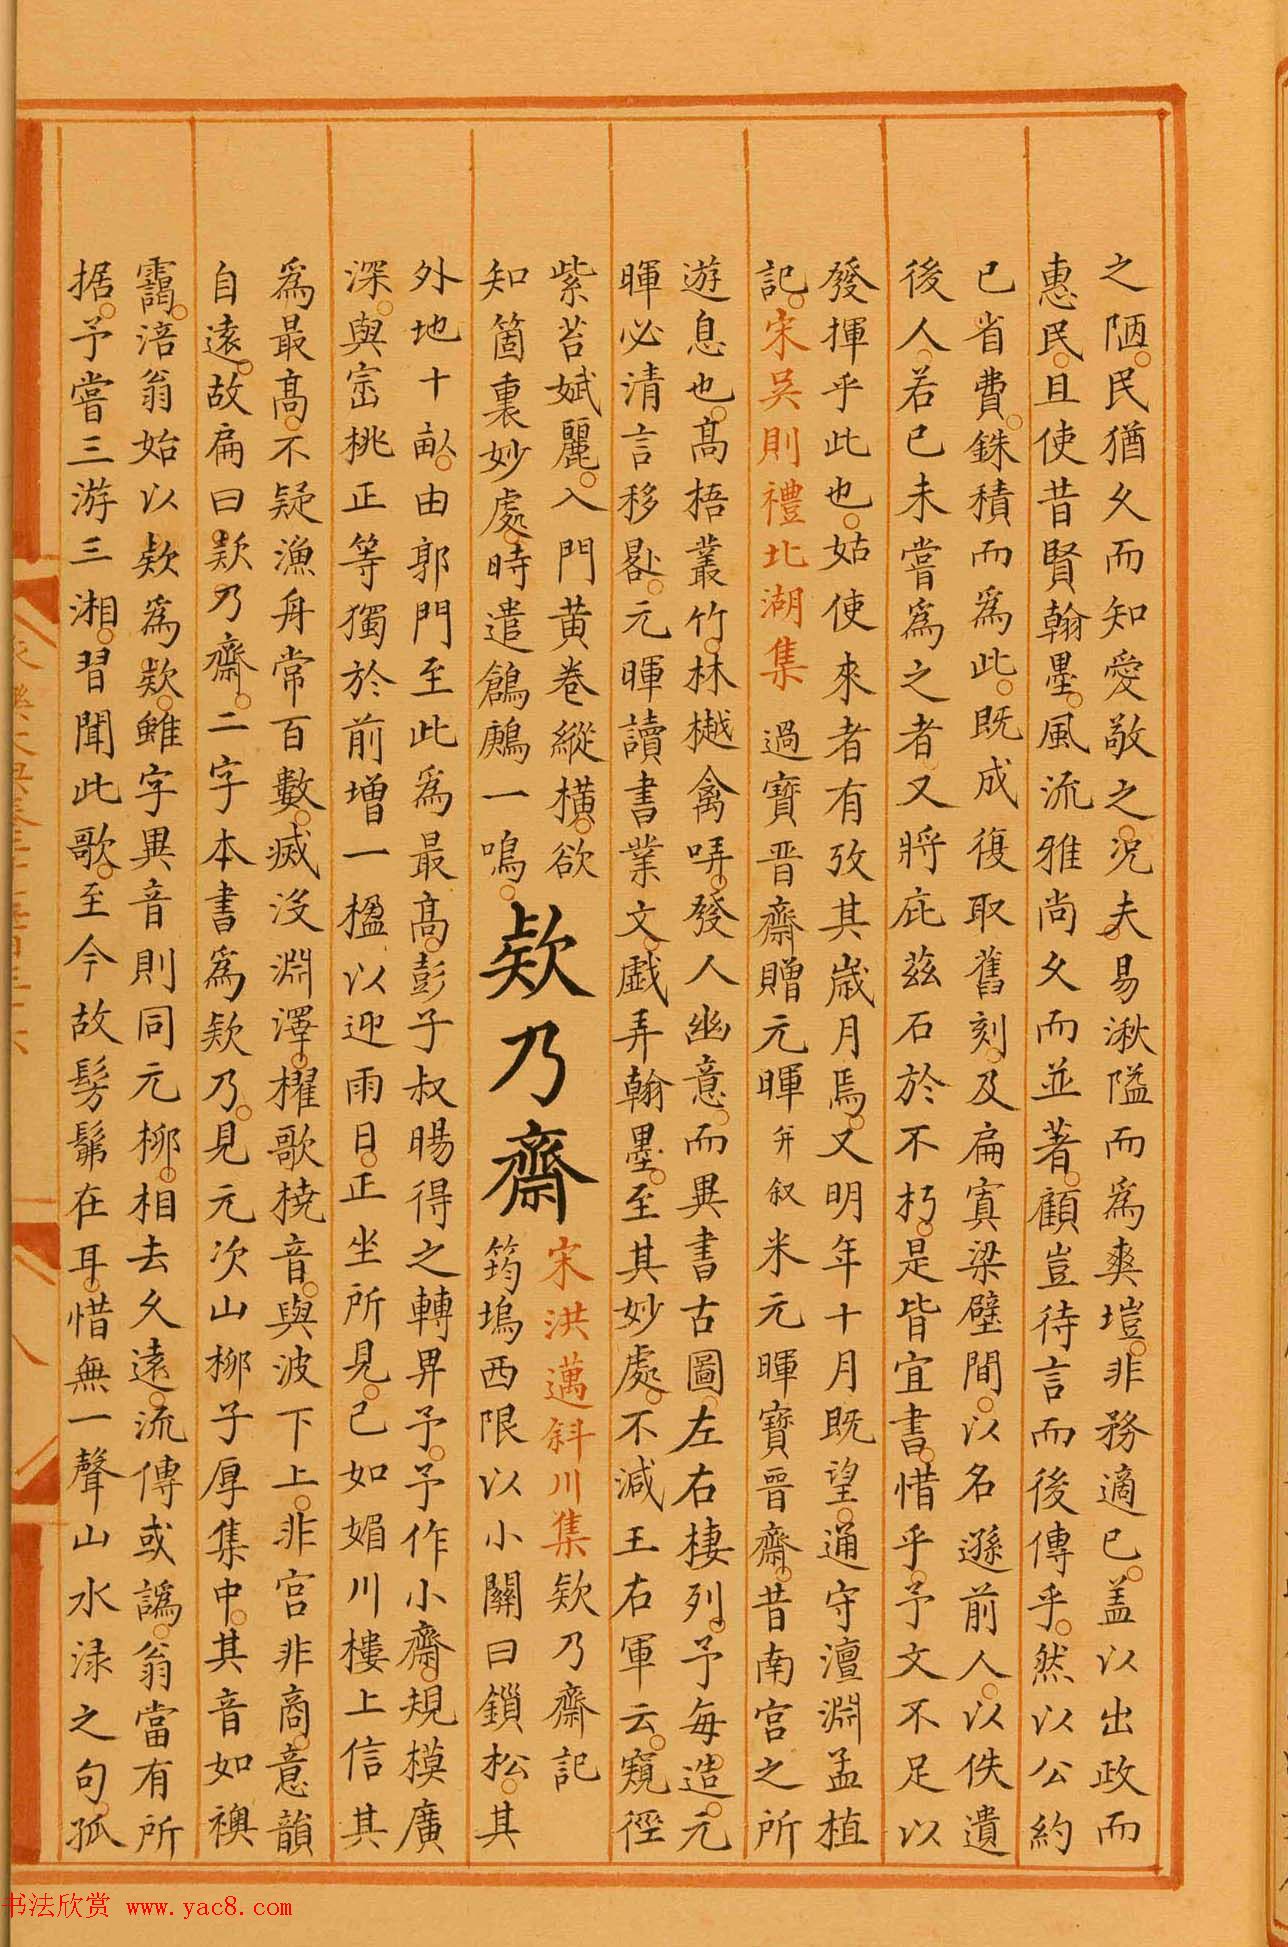 之陋民猶久而知愛敬之況夫易湫隘而為爽塏非務適已盖以出政而
惠民且使昔賢翰墨風流雅尚久而並著顧豈待言而後傳乎然以公約
已省費銖積而為此既成復取舊刻及扁寘梁壁間以名遜前人以佚遺
後人若已未嘗為之者又將庇茲石於不朽是皆宜書惜乎予文不足以
發揮乎此也姑使來者有攷其歲月焉又明年十月既望通守澶淵孟植
記宋吳則禮北湖集 過寶晉齋贈元暉并叙米元暉寶晉齋昔南宮之所
遊息也高梧叢竹林樾禽哢發人幽意而異書古圖左右棲列予每造元
暉必清言移晷元暉讀書業文戲弄翰墨至其妙處不減王右軍云窺徑
紫苔斌麗入門黄卷縱橫欲
知箇裏妙處時遣鶬鶊一鳴
欵乃齋
宋洪邁斜川集欵乃齋記
筠塢西限以小關曰鎖松其
外地十畝由郭門至此為最高彭子叔暘得之轉畀予予作小齋規模廣
深與窑桃正等獨於前增一楹以迎雨日正坐所見已如媚川樓上信其
為最高不疑漁舟常百數滅没淵澤櫂歌橈音與波下上非宮非商意韻
自遠故扁曰欵乃齋二字本書為欵乃見元次山柳子厚集中其音如襖
靄涪翁始以欵為欵雖字異音則同元柳相去久遠流傳或譌翁當有所
据予嘗三游三湘習聞此歌至今故髣髴在耳惜無一聲山水渌之句孤
書法欣赏 www.yac8.com